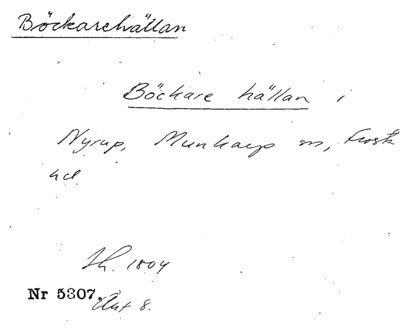 Böckarehällan
Böckare hällan i
Nyrup, Munkarp sn, Frosta
hd.
Sk. 1804
Nr 5307. Akt 8.